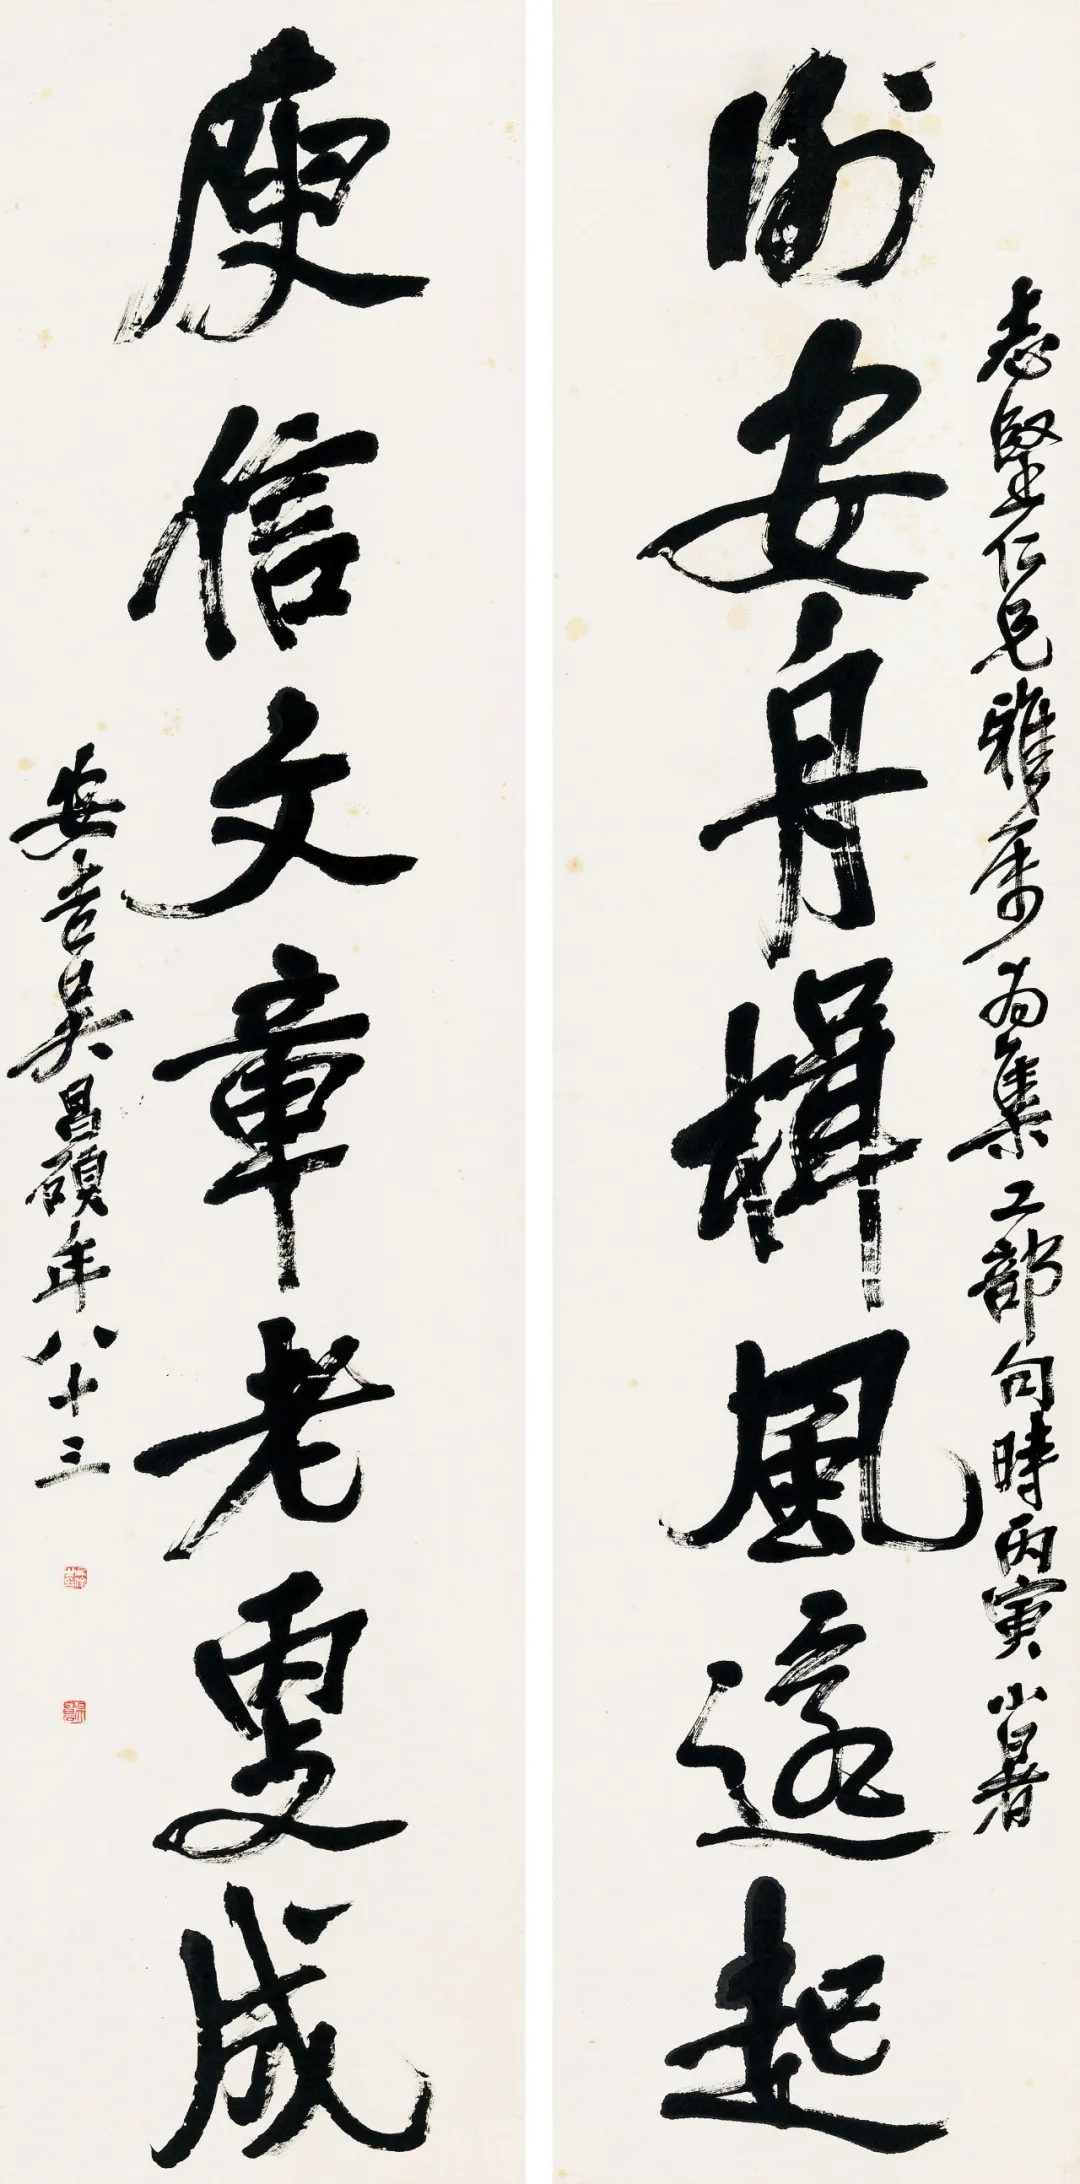 志堅仁兄雅属為集工部句時丙寅小暑
謝安舟楫風還起
庾信文章老更成
安吉吳昌碩年八十三